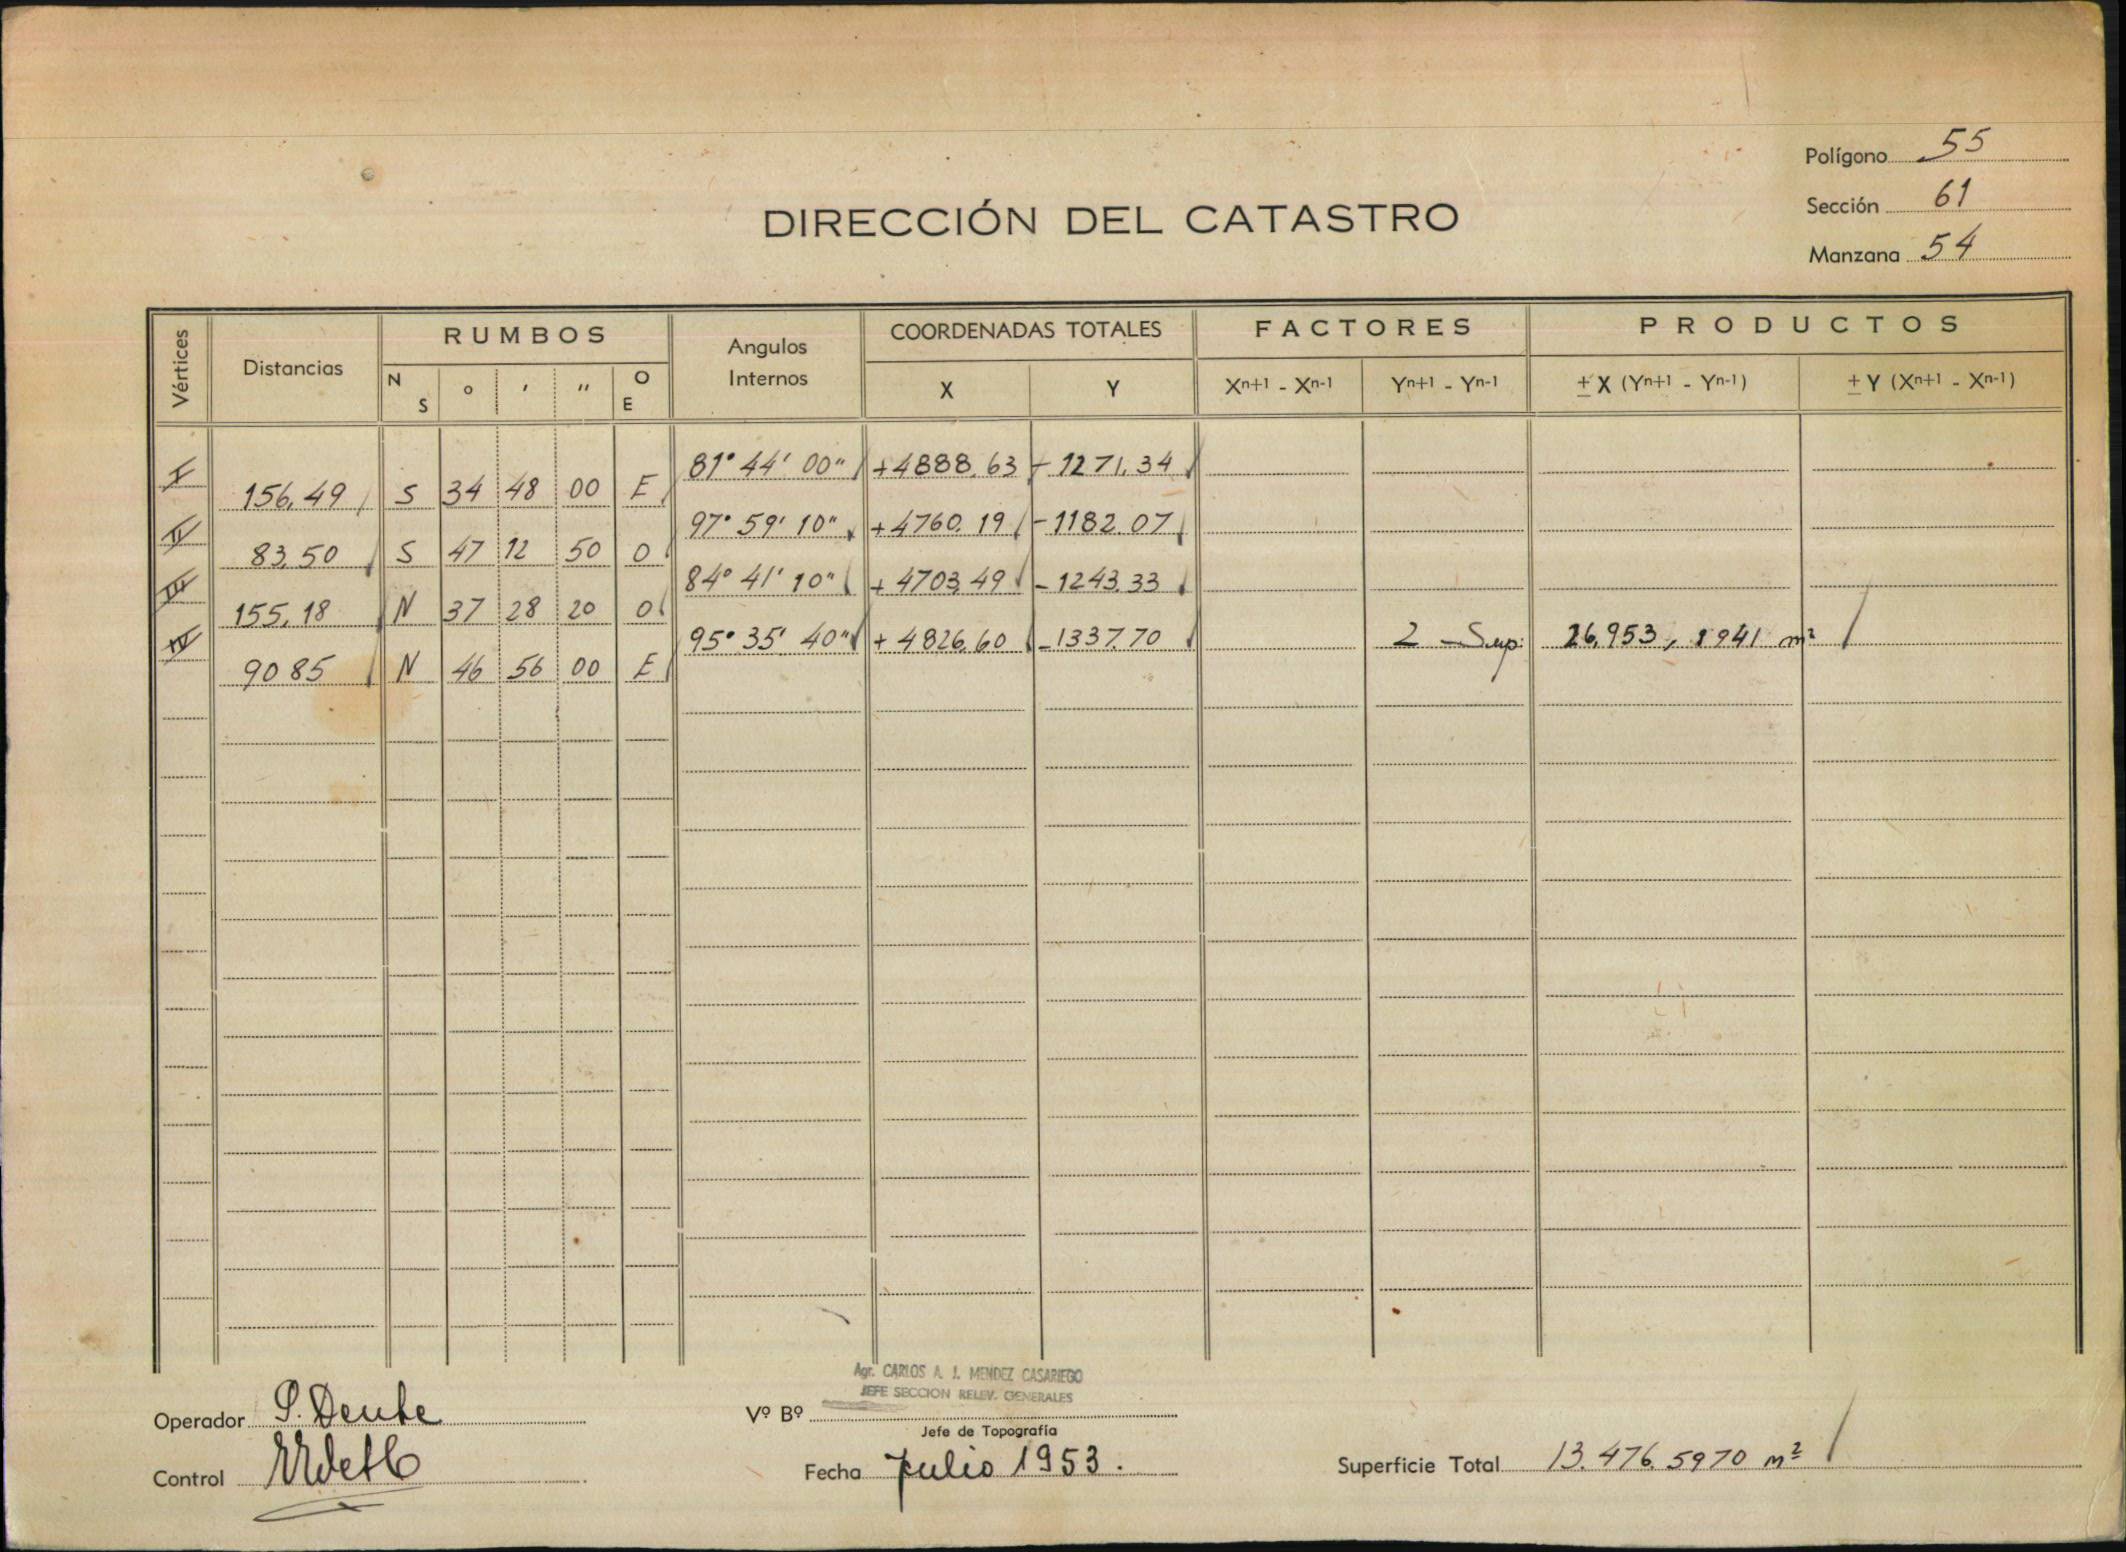 Polígono 55
Sección 61
Manzana 54
DIRECCIÓN DEL CATASTRO
Vértices Distancias RUMBOS Angulos Internos COORDENADAS TOTALES FACTORES PRODUCTOS
N S ° ' " O E X Y Xn+1 - Xn-1 Yn+1 - Yn-1 ± X (Yn+1 - Yn-1) ± Y (Xn+1 - Xn-1)
I 81° 44' 00" +4888.63 -1271.34
156.49 S 34 48 00 E
II 97° 59' 10" +4760.19 -1182.07
83,50 S 47 12 50 O
III 84° 41' 10" +4703,49 -1243.33
155,18 N 37 28 20 O
IV 95° 35' 40" +4826.60 -1337.70 2 Sup. 26.953,1941 m²
90 85 N 46 56 00 E
Agr. CARLOS A. J. MENDEZ CASARIEGO
JEFE SECCION RELEV. GENERALES
Operador
Vº Bº
Jefe de Topografía
Control
Fecha Julio 1953.
Superficie Total 13.476.5970 m²